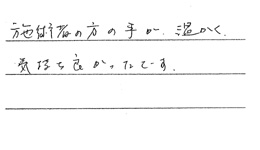 施術者の方の手が、温かく、
気持ち良かったです。